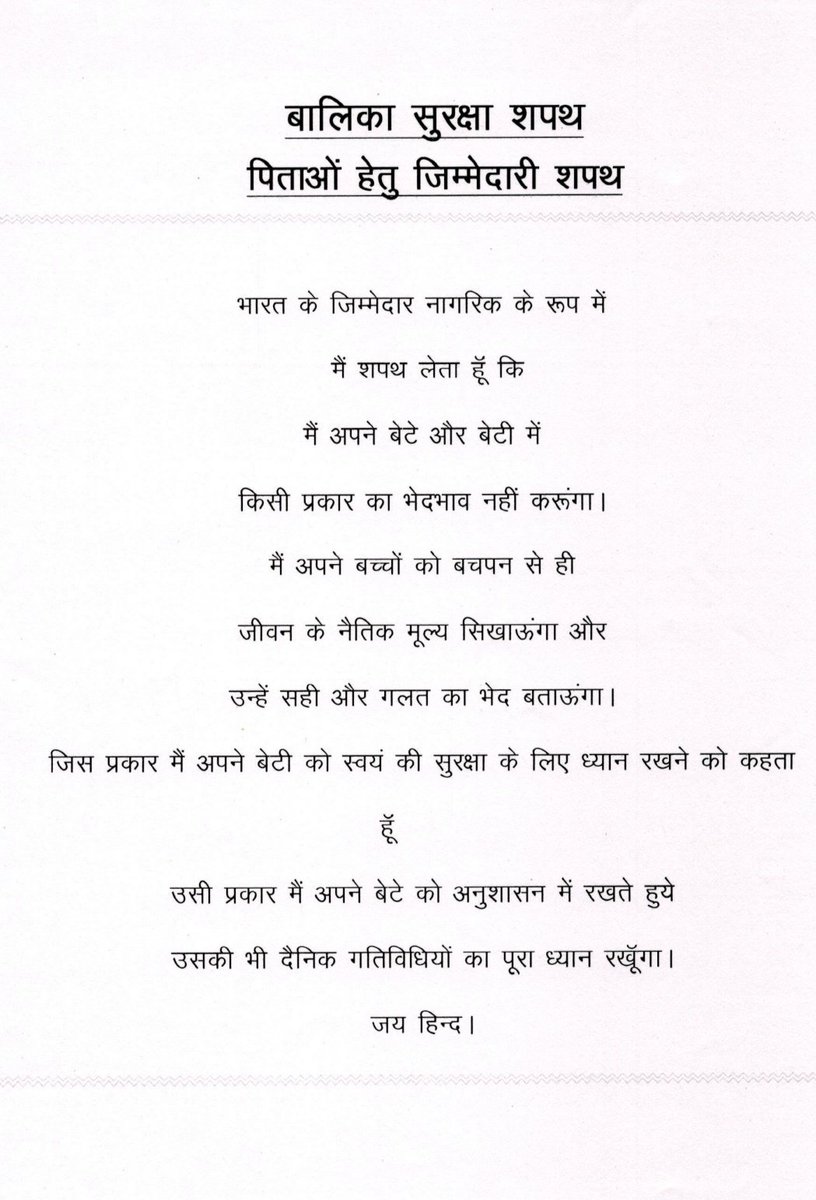 बालिका सुरक्षा शपथ
पिताओं हेतु जिम्मेदारी शपथ
भारत के जिम्मेदार नागरिक के रूप में
मैं शपथ लेता हूॅ कि
मैं अपने बेटे और बेटी में
किसी प्रकार का भेदभाव नहीं करूंगा।
मैं अपने बच्चों को बचपन से ही
जीवन के नैतिक मूल्य सिखाऊंगा और
उन्हें सही और गलत का भेद बताऊंगा।
जिस प्रकार मैं अपने बेटी को स्वयं की सुरक्षा के लिए ध्यान रखने को कहता
हूॅ
उसी प्रकार मैं अपने बेटे को अनुशासन में रखते हुये
उसकी भी दैनिक गतिविधियों का पूरा ध्यान रखूॅगा।
जय हिन्द।